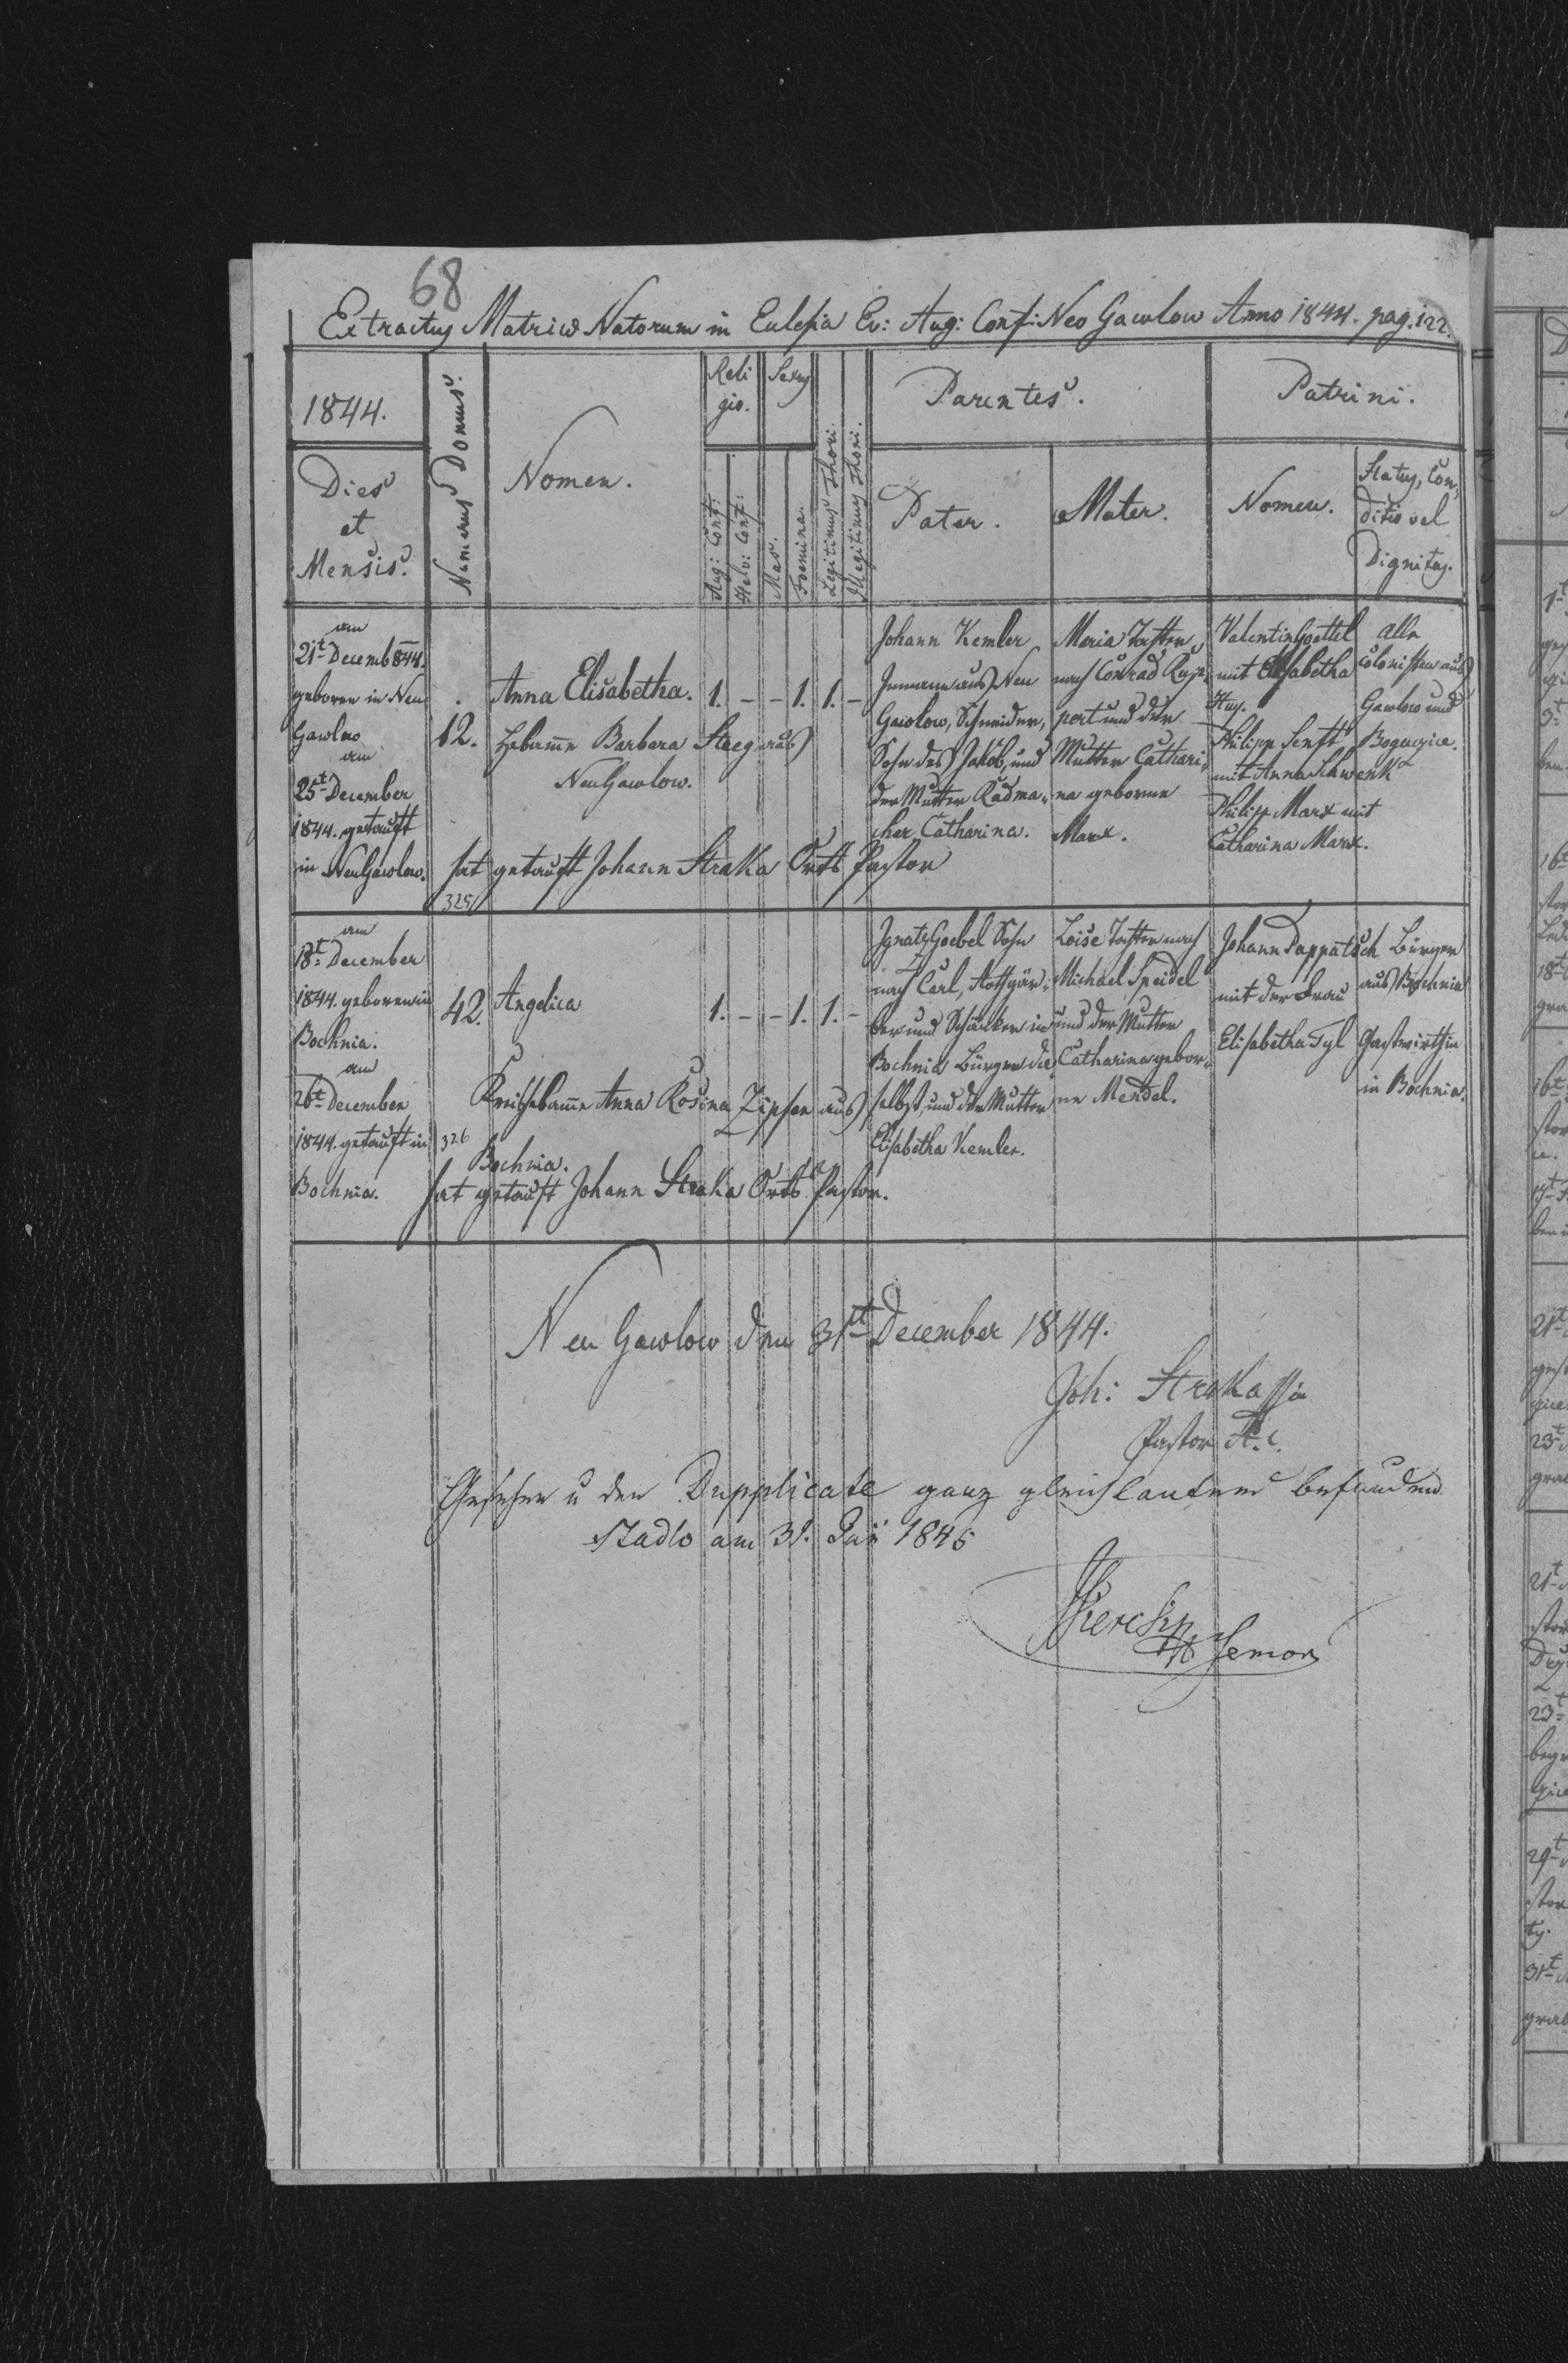 68
Extractus Matricæ Natorum in Eclesia Ev: Aug: Conf: Neo Gawlow Anno 1844. pag. 122.
1844.
Dies
et
Mensis.
Numerus Domus.
Nomen.
Reli
gio.
Aug: Conf:
Helv: Conf:
Sexus
Mas.
Foemina.
Legitimus Thori.
Illegitimus Thori.
Parentes.
Pater.
Mater.
Patrini.
Nomen.
Status, Con,
ditio vel
Dignitas.
am
21t Decemb 844.
geboren in Neu
Gawlow
am
25t December
1844. getauft
in NeuGawlow.
12.
Anna Elisabetha.
Hebamme Barbara Steeg aus
NeuGawlow.
hat getauft Johann Straka Orts Pastor
325
1. – – 1. 1. –
Johann Kemler
Inmann aus Neu
Gawlow, Schneider,
Sohn des Jakob, und
der Mutter Radma-
cher Catharina.
Maria Tochter
nach Conrad Rup-
pert und der
Mutter Cathari-
na geborene
Marx.
Valentin Goettel
mit Elisabetha
Hug.
Philipp Senft
mit Anna Schwenk
Philipp Marx mit
Catharina Marx.
alle
Colonisten aus
Gawlow und
Bogucice.
am
18t December
1844. geboren in
Bochnia.
am
26t December
1844. getauft in
Bochnia.
42.
Angelica
Kreishebamme Anna Rosina Zipser aus
326
Bochnia.
hat getauft Johann Straka Orts Pastor.
1. – – 1. 1. –
Ignatz Goebel Sohn
nach Carl, Rothgär-
ber und Schänker in
Bochnia Bürger da-
selbst, und der Mutter
Elisabetha Kemler.
Loise Tochter nach
Michael Speidel
und der Mutter
Catharina gebor-
ne Mendel.
Johann Pappatsch
mit der Frau
Elisabetha Tyl
Bürger
aus Bochnia
Gastwirthin
in Bochnia.
Neu Gawlow den 31t December 1844.
Joh: Straka
Pastor A. C.
Gesehen u den Dupplicate ganz gleichlautend befunden
Stadlo am 31. 1845
Senior